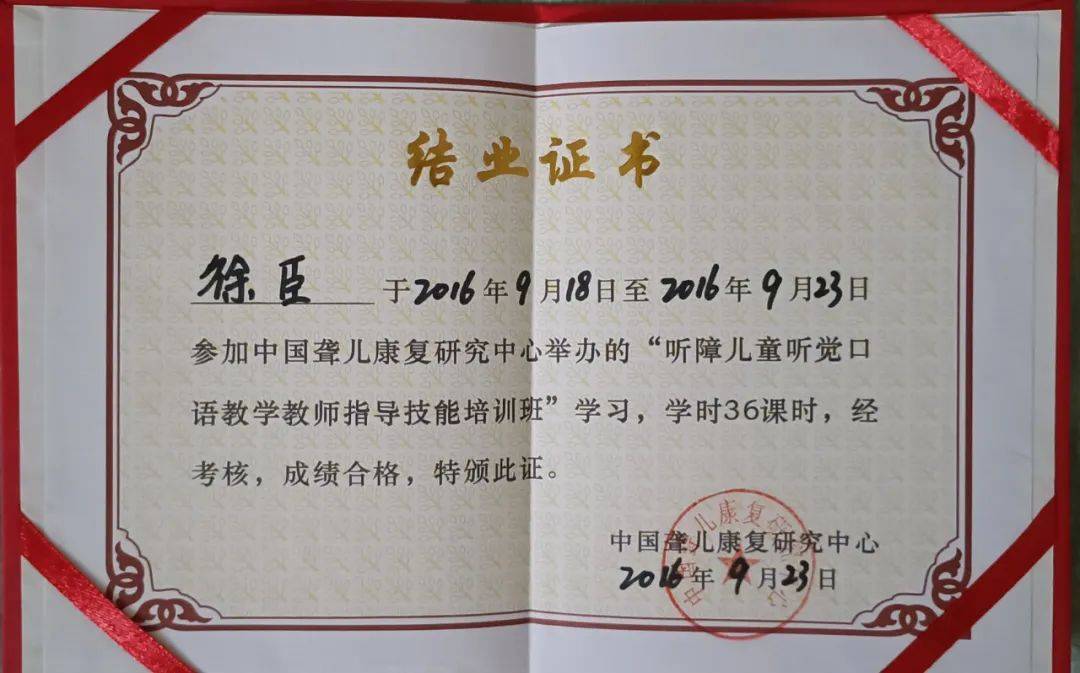 结业证书
徐臣 于2016年9月18日至2016年9月23日
参加中国聋儿康复研究中心举办的“听障儿童听觉口
语教学教师指导技能培训班”学习，学时36课时，经
考核，成绩合格，特颁此证。
中国聋儿康复研究中心
2016年9月23日
中国聋儿康复研究中心